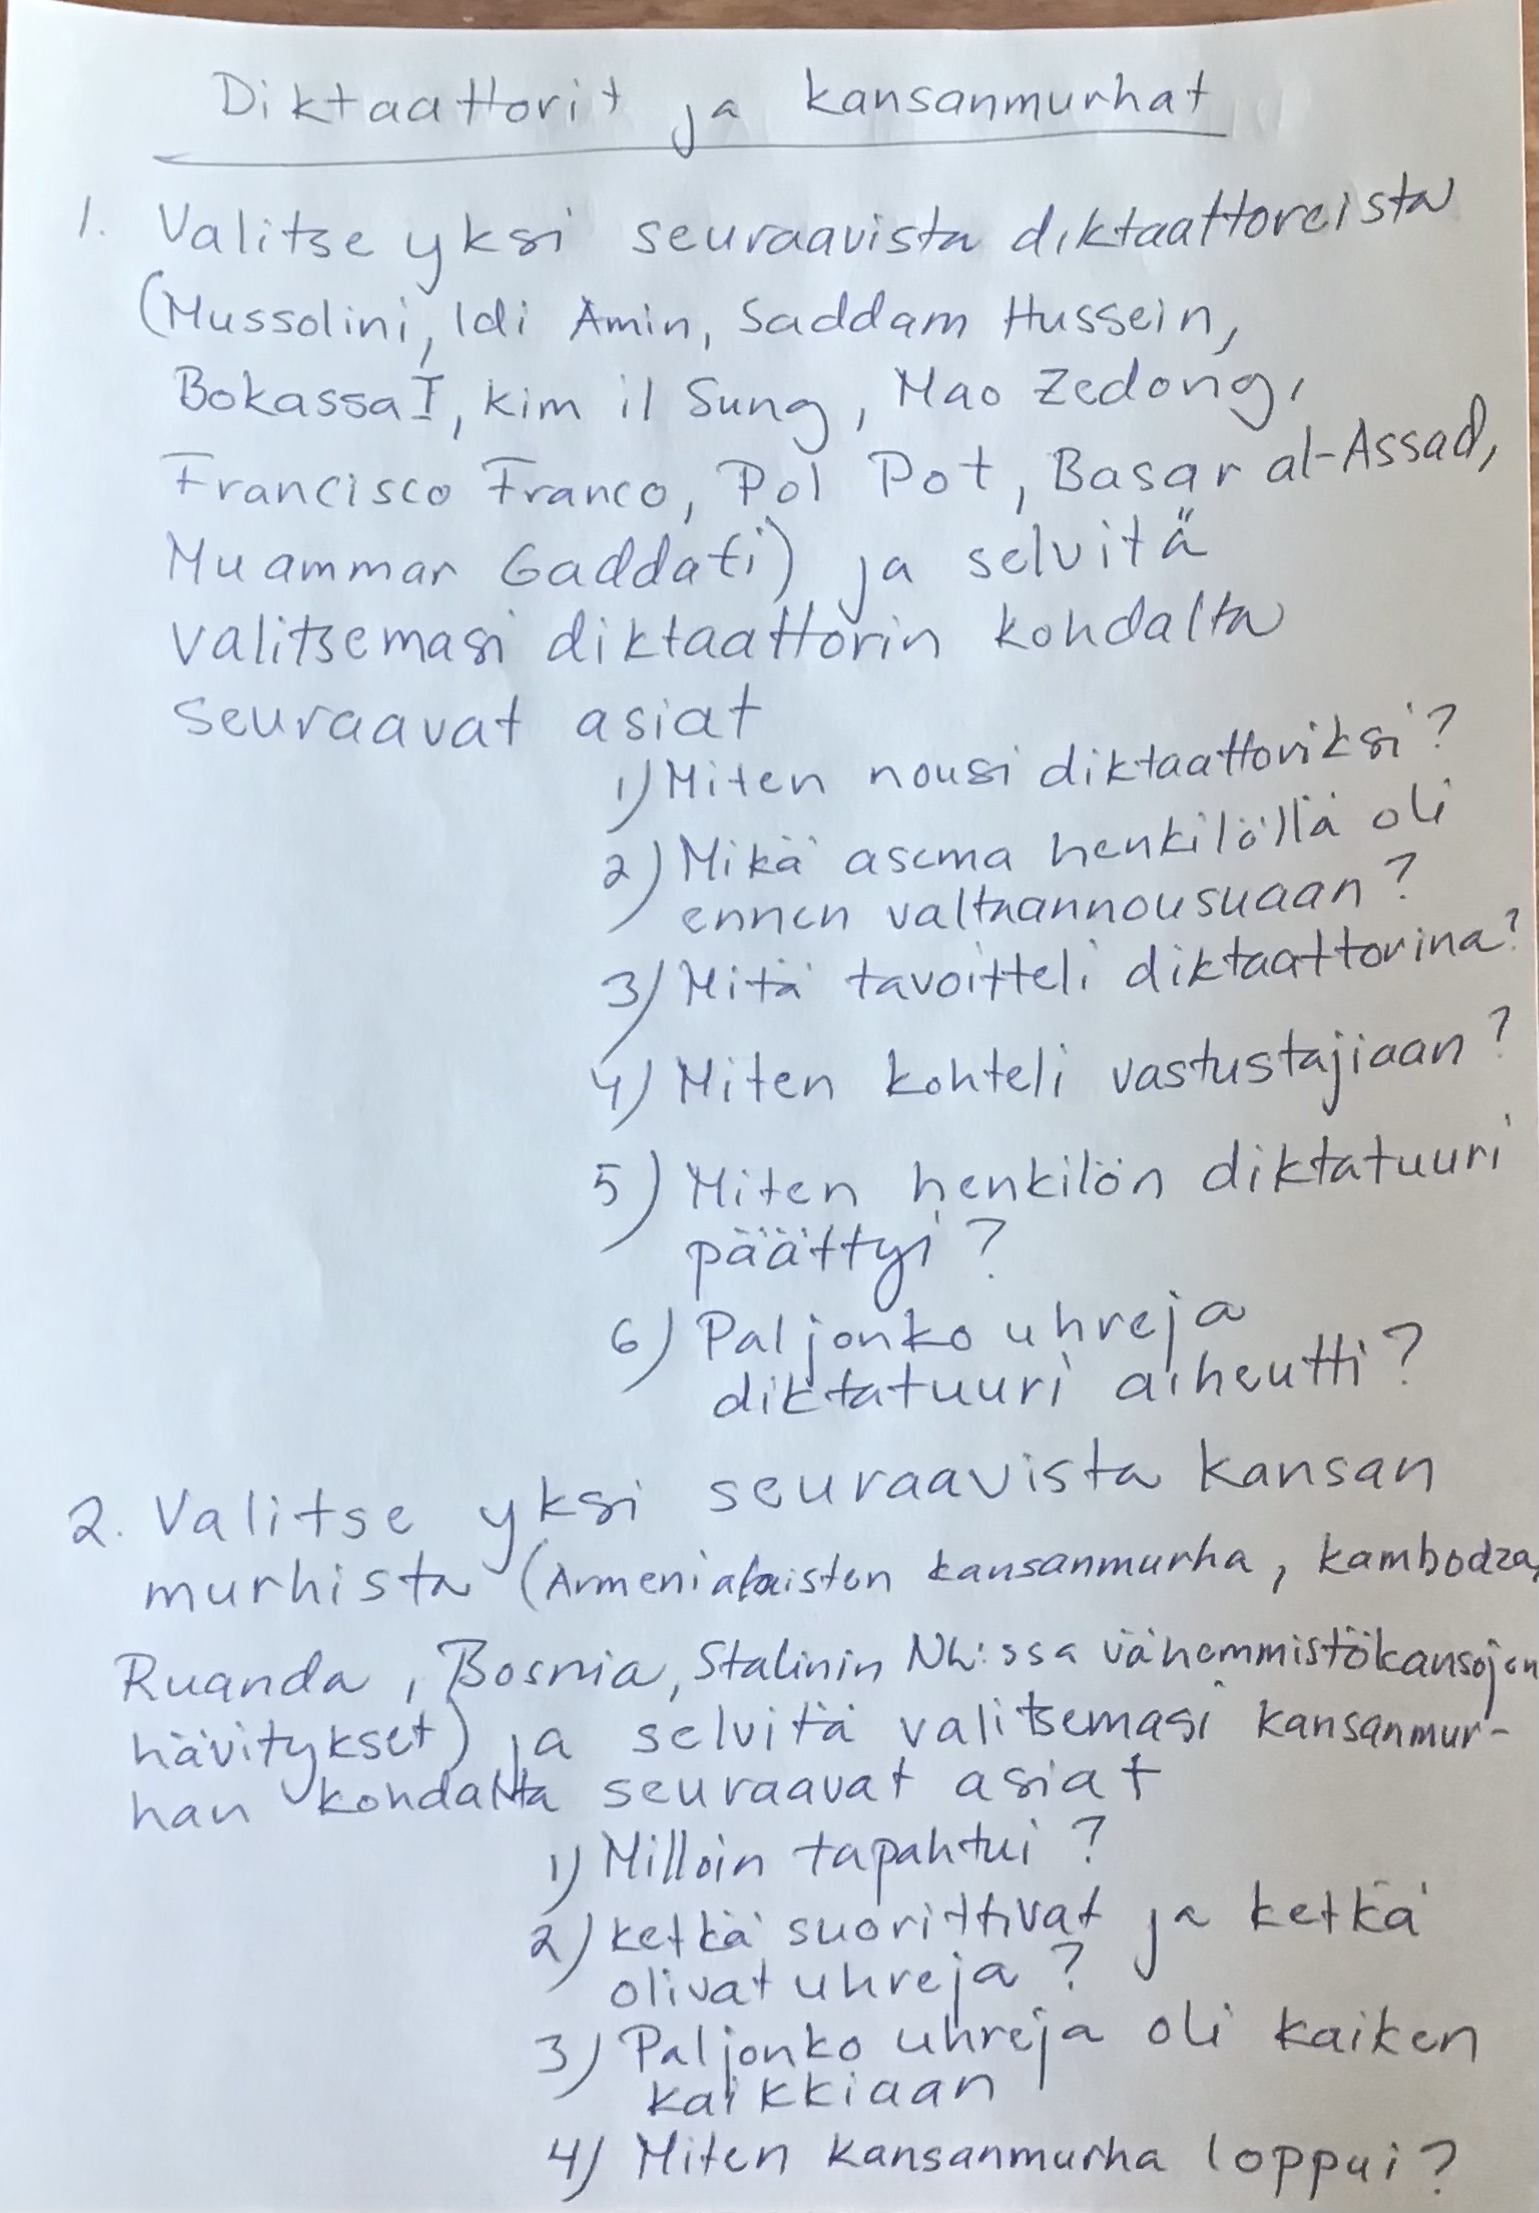 Diktaattorit ja kansanmurhat
1. Valitse yksi seuraavista diktaattoreista
(Mussolini, Idi Amin, Saddam Hussein,
Bokassa I, Kim il Sung, Mao Zedong,
Francisco Franco, Pol Pot, Basar al-Assad,
Muammar Gaddafi) ja selvitä
valitsemasi diktaattorin kohdalta
seuraavat asiat
1) Miten nousi diktaattoriksi?
2) Mikä asema henkilöllä oli
ennen valtaannousuaan?
3) Mitä tavoitteli diktaattorina?
4) Miten kohteli vastustajiaan?
5) Miten henkilön diktatuuri
päättyi?
6) Paljonko uhreja
diktatuuri aiheutti?
2. Valitse yksi seuraavista kansan
murhista (Armenialaisten kansanmurha, Kambodza,
Ruanda, Bosnia, Stalinin NL:ssa vähemmistökansojen
hävitykset) ja selvitä valitsemasi kansanmur-
han kohdalta seuraavat asiat
1) Milloin tapahtui?
2) Ketkä suorittivat ja ketkä
olivat uhreja?
3) Paljonko uhreja oli kaiken
kaikkiaan
4) Miten kansanmurha loppui?